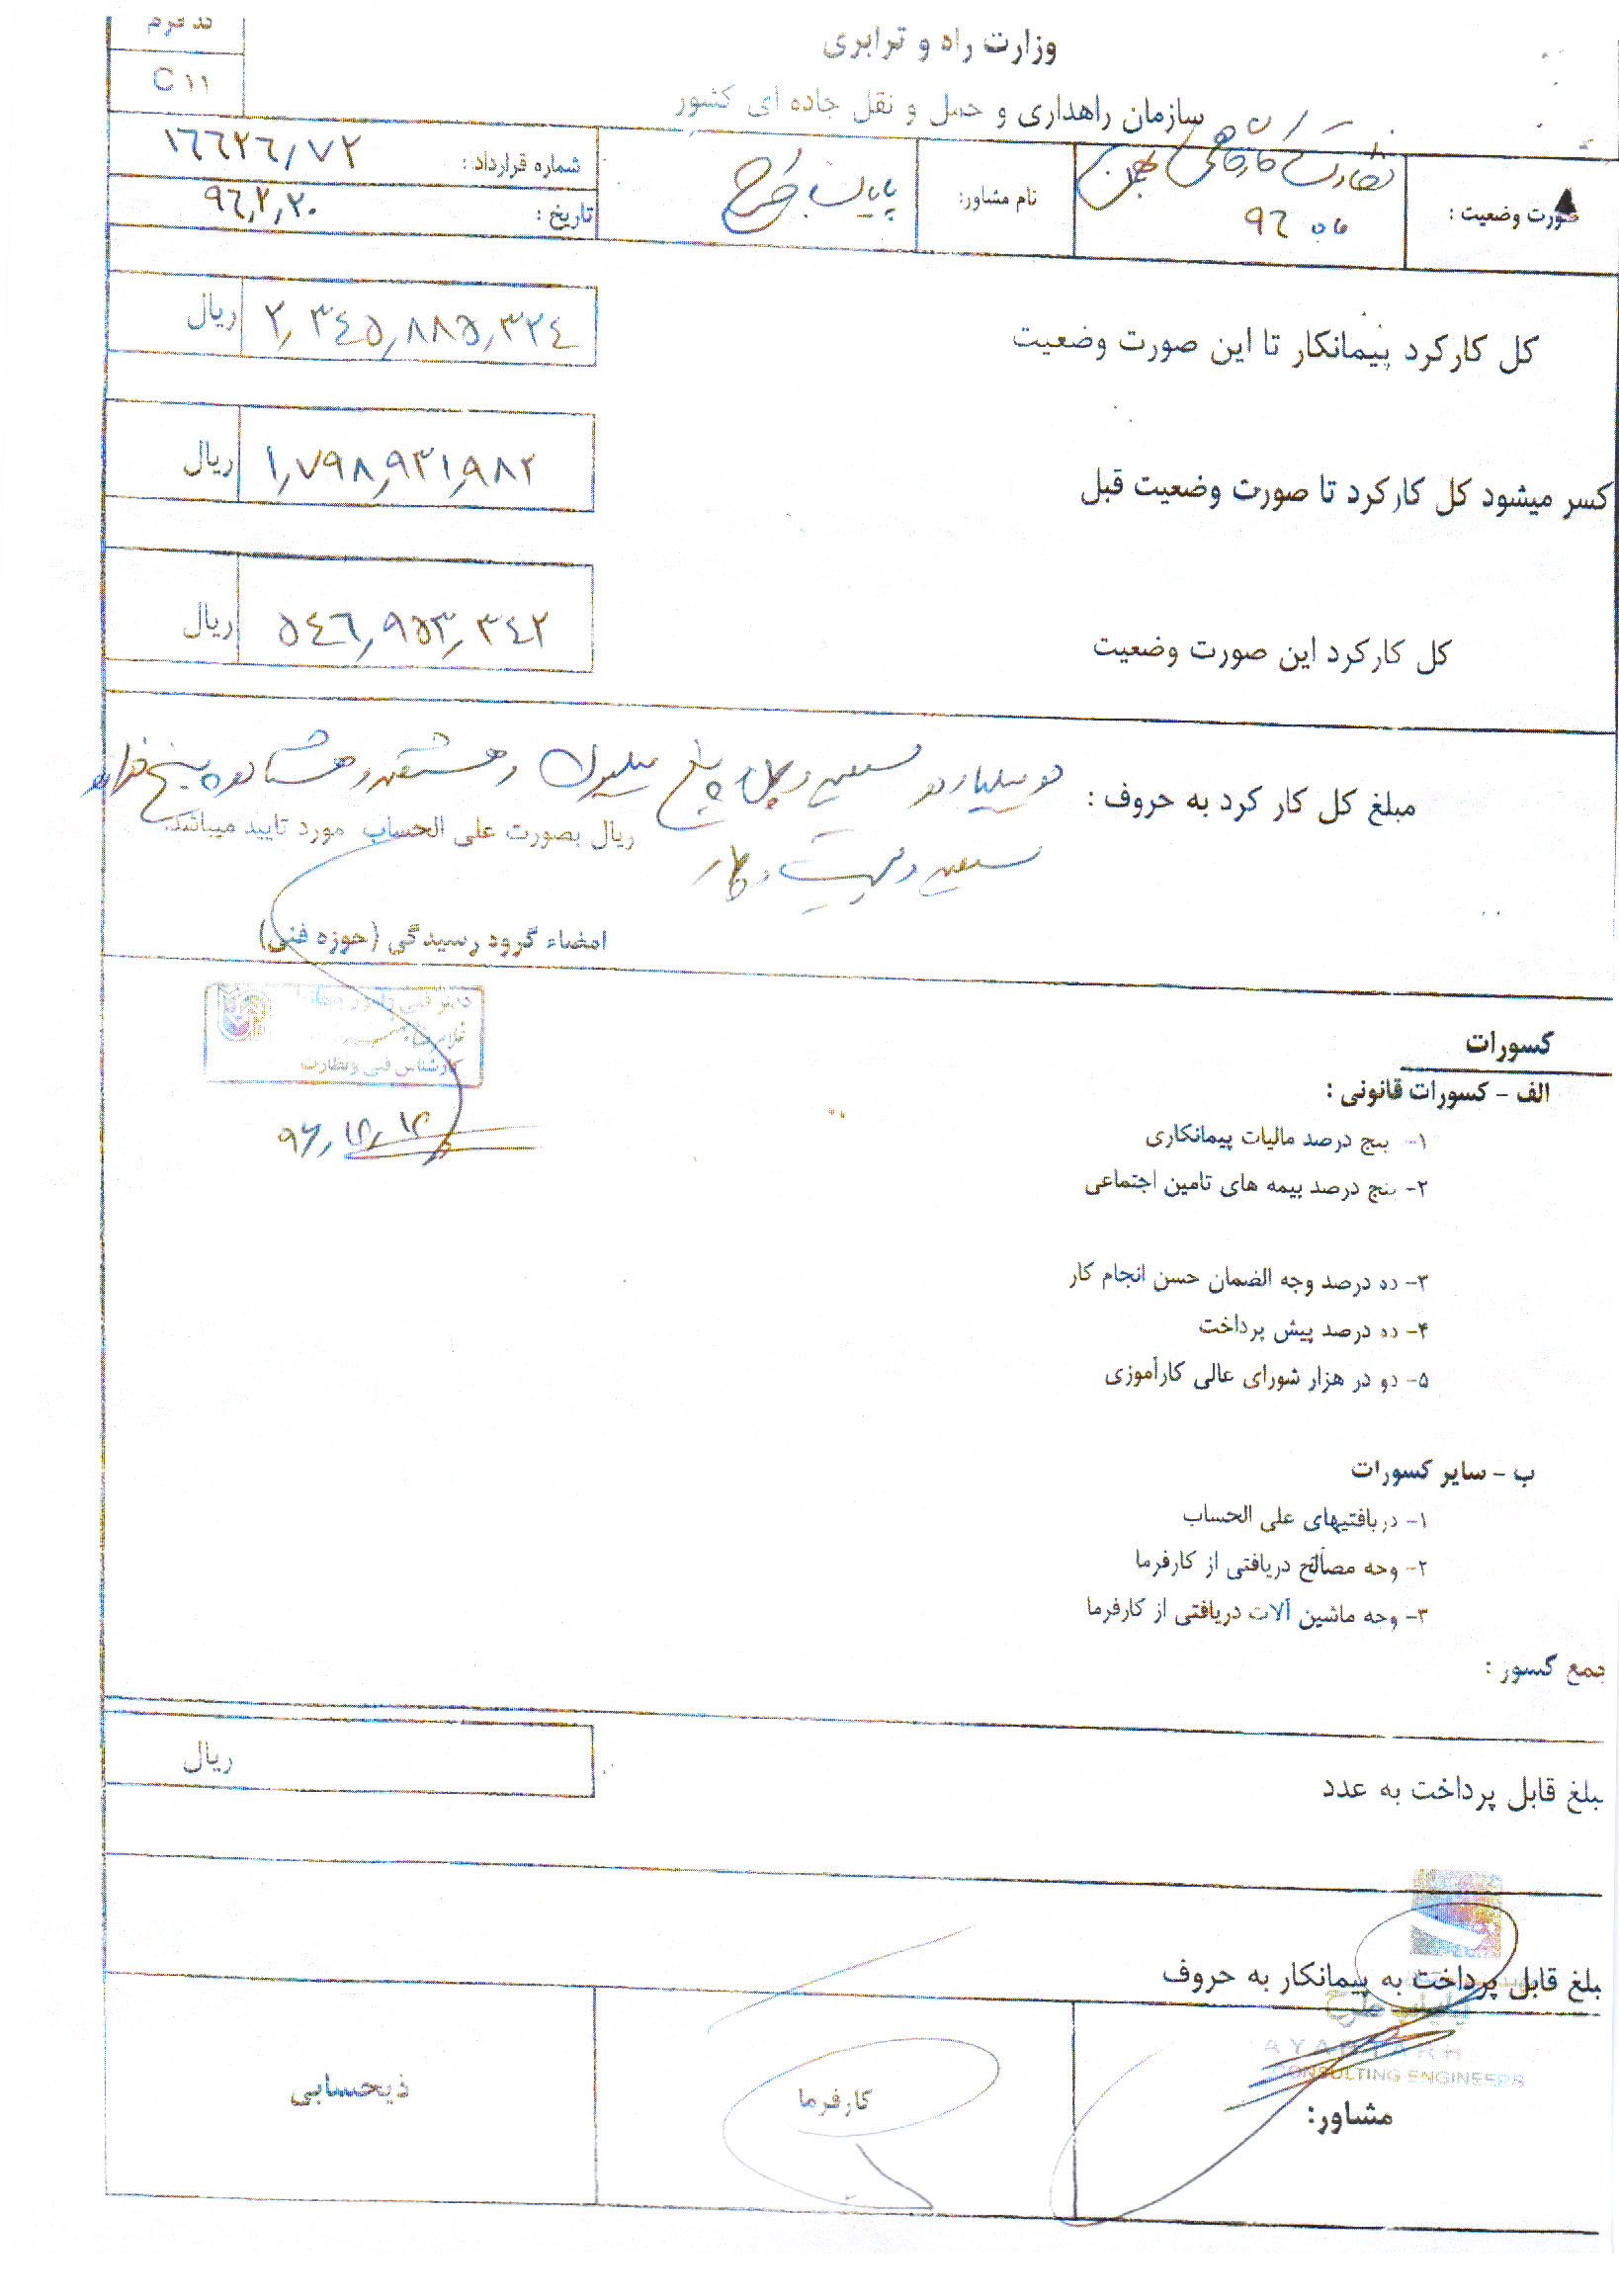 کد فرم
C ۱۱
وزارت راه و ترابری
سازمان راهداری و حمل و نقل جاده ای کشور
صورت وضعیت :
نظارت کارگاهی بهمن
ماه ۹۶
نام مشاور:
پایاب طرح
شماره قرارداد :
۱۶۶۲۶/۷۲
تاریخ :
۹۶,۲,۲۰
کل کارکرد پیمانکار تا این صورت وضعیت
۲,۳۴۵,۸۸۵,۳۲۴ ریال
کسر میشود کل کارکرد تا صورت وضعیت قبل
۱,۷۹۸,۹۳۱,۹۸۲ ریال
کل کارکرد این صورت وضعیت
۵۴۶,۹۵۳,۳۴۲ ریال
مبلغ کل کار کرد به حروف : دو میلیارد و سیصد و چهل و پنج میلیون و هشتصد و هشتاد و پنج هزار و
سیصد و بیست و چهار ریال بصورت علی الحساب مورد تایید میباشد.
امضاء گروه رسیدگی (حوزه فنی)
کارشناس فنی و نظارت
۹۶,۱۲,۱۲
کسورات
الف - کسورات قانونی :
۱- پنج درصد مالیات پیمانکاری
۲- پنج درصد بیمه های تامین اجتماعی
۳- ده درصد وجه الضمان حسن انجام کار
۴- ده درصد پیش پرداخت
۵- دو در هزار شورای عالی کارآموزی
ب - سایر کسورات
۱- دریافتیهای علی الحساب
۲- وجه مصالح دریافتی از کارفرما
۳- وجه ماشین آلات دریافتی از کارفرما
جمع کسور :
بلغ قابل پرداخت به عدد
ریال
بلغ قابل پرداخت به پیمانکار به حروف
پایاب طرح
AYAB TARH
CONSULTING ENGINEERS
مشاور:
کارفرما
ذیحسابی